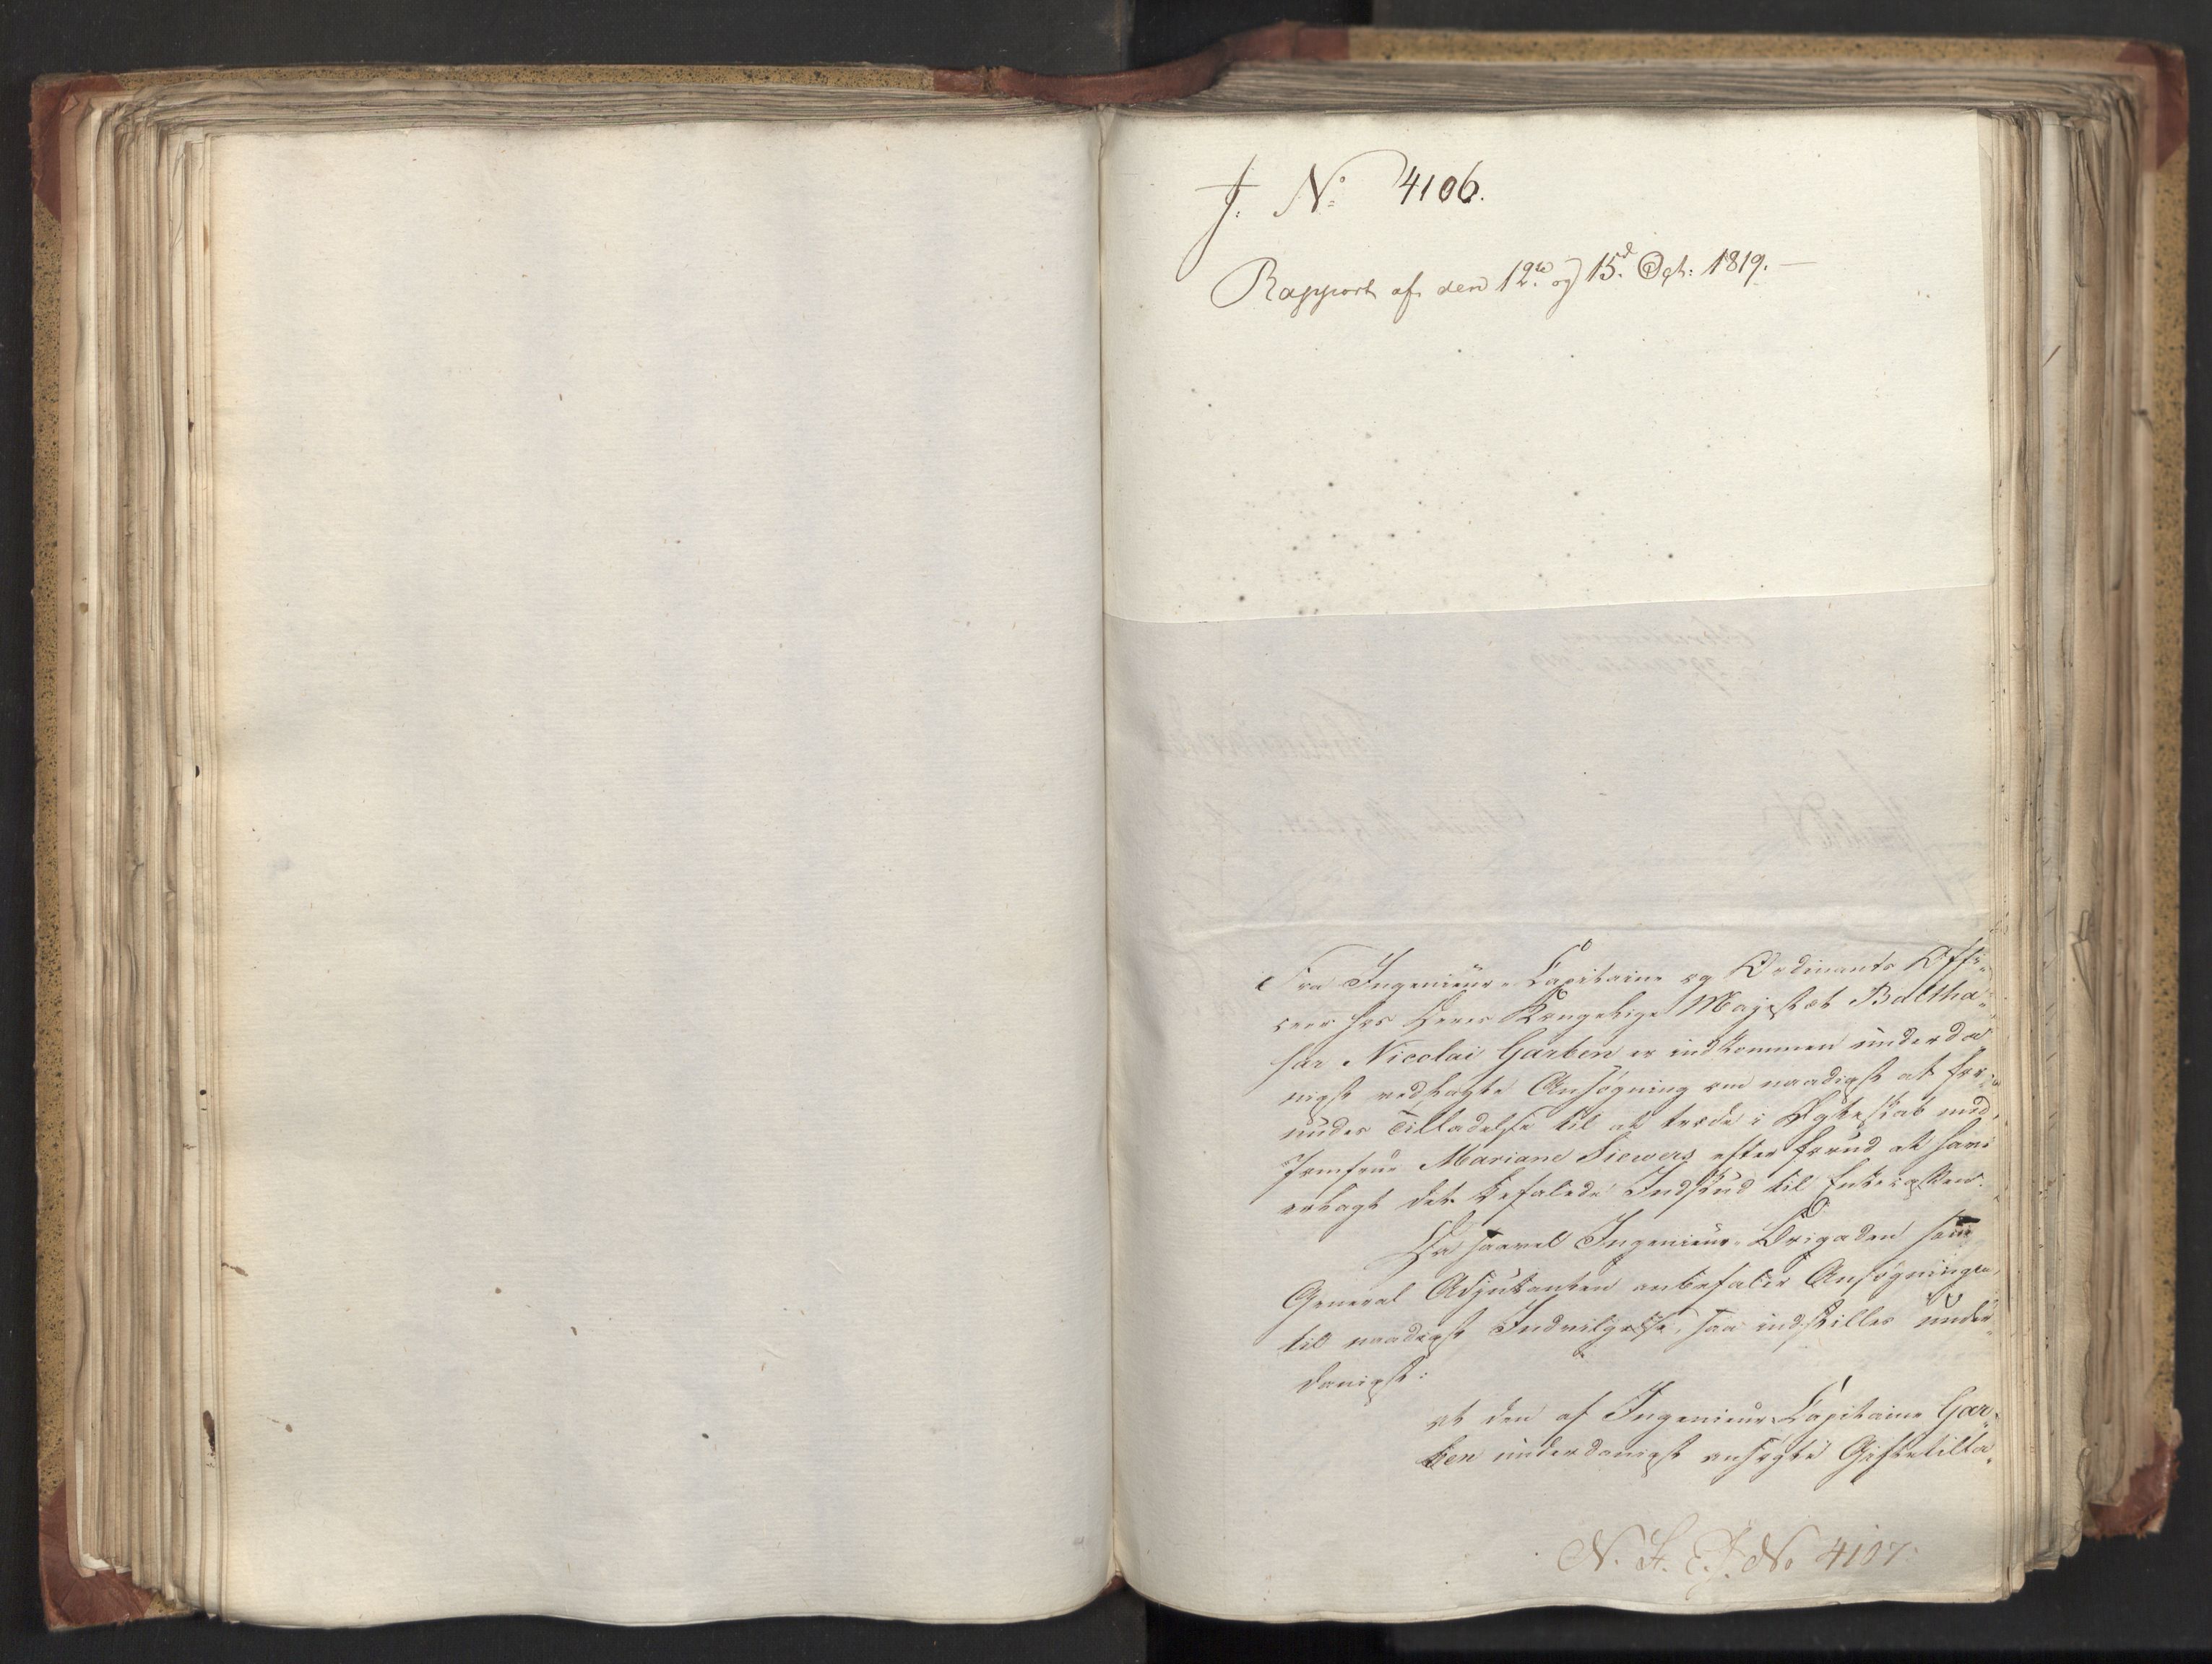 J. No 4106.
Rapport af den 12te og 15d. Oct: 1819.
Fra Ingenieur-Capitaine og Ordinants Offi-
ceer hos Deres Kongelige Majestæt Baltha-
sar Nicolai Garben er indkommen underda-
nigst vedlagte Ansøgning om naadigst at for-
undes Tilladelse til at træde i Ægteskab med
Jomfrue Mariane Siewers efter forud at have
erlagt det befalede Indskud til Enkecassen.
Da saavel Ingenieur-Brigaden som
General Adjutanten anbefaler Ansøgningen
til naadigst Indvilgelse, saa indstilles under-
danigst:
at den af Ingenieur Capitaine Gar-
ben underdanigst ansøgte Giftetilla-
N. H. E. J. No 4107.